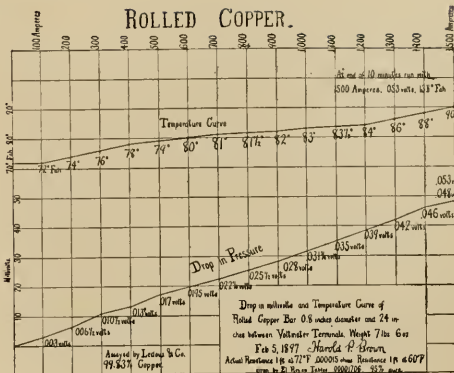 ROLLED COPPER.
100 Amperes
200
300
400
500
600
700
800
900
1000
1100
1200
1300
1400
1500 Amperes
At end of 10 minutes run with
1500 Amperes, .053 volts, 138° Fah
90°
80°
70° Fah.
Temperature Curve
72° Fah
74°
76°
78°
79°
80°
81°
81½
82°
83°
83½°
84°
86°
88°
90
Drop in Pressure
.003 volts
.006½ volts
.010½ volts
.013 volts
.017 volts
.0195 volts
.025½ volts
.028 volts
.031¾ volts
.035 volts
.039 volts
.042 volts
.046 volts
.048
.053
Millivolts
10
20
30
40
50
60
Assayed by Ledoux & Co.
99.83% Copper.
Drop in millivolts and Temperature Curve of
Rolled Copper Bar 0.8 inches diameter and 24 in-
ches between Voltmeter Terminals. Weight 7 lbs 6 oz
Feb 5, 1897 Harold P. Brown
Actual Resistance 1 ft at 72°F .000015 ohms Resistance 1 ft @ 60°F
given by El. Power Tables .00001706 95% pure